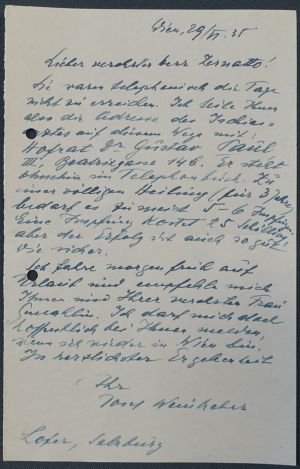 Wien, 29/VI. 35
Lieber verehrter Herr Zernatto!
Sie waren telephonisch die Tage
nicht zu erreichen. Ich teile Ihnen
also die Adresse des Ischias-
arztes auf diesem Wege mit:
Hofrat Dr. Gustav Paul
III, 14b. Er steht
ohnehin im Telephonbuch. Zu
einer völligen Heilung (für 3 Jahre)
bedarf es zumeist 5-6 Impfungen
Eine Impfung kostet 25 Schilling
aber der Erfolg ist auch so gut
wie sicher.
Ich fahre morgen früh auf
Urlaub und empfehle mich
Ihnen und Ihrer verehrten Frau
Gemahlin. Ich darf mich doch
hoffentlich bei Ihnen melden,
wenn ich wieder in Wien bin.
In herzlichster Ergebenheit
Ihr
Josef Weinheber
Lofer, Salzburg